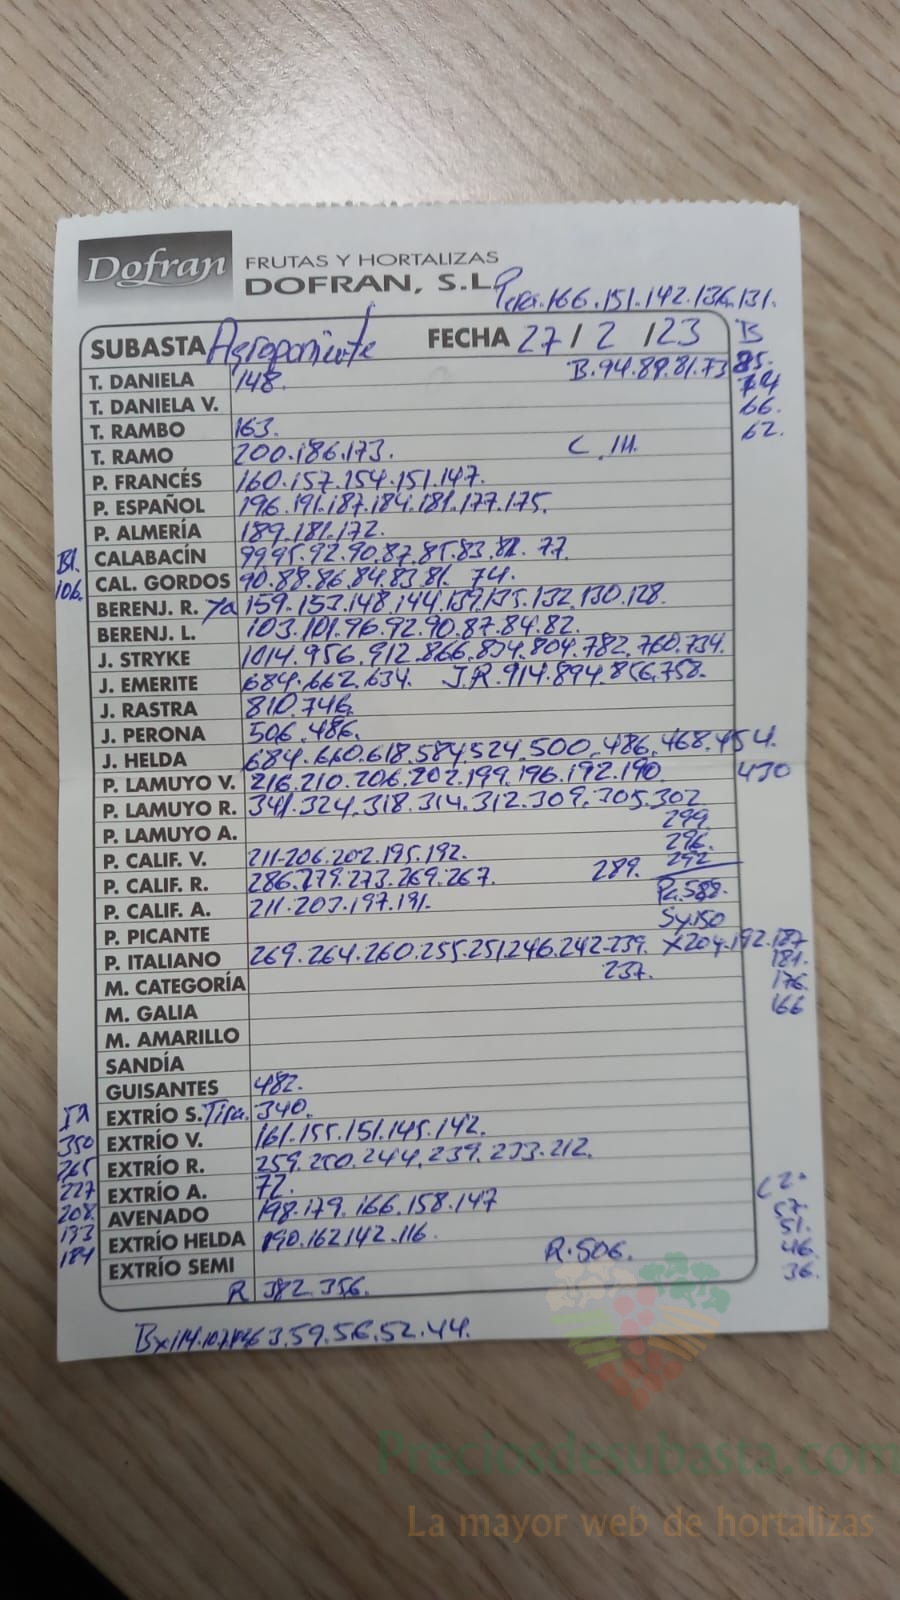 Dofran FRUTAS Y HORTALIZAS
DOFRAN, S.L.
Pera.166.151.142.136.131.
SUBASTA Agroponiente FECHA 27/2/23 B
T. DANIELA 148. B.94.89.81.73 85.
T. DANIELA V. 66.
T. RAMBO 163. 62.
T. RAMO 200.186.173. C.111.
P. FRANCÉS 160.157.154.151.147.
P. ESPAÑOL 196.191.187.184.181.177.175.
P. ALMERÍA 189.181.172.
Bl. CALABACÍN 99.95.92.90.87.85.83.82.77.
106. CAL. GORDOS 90.88.86.84.83.81.74.
BERENJ. R. 159.153.148.144.139.135.132.130.128.
BERENJ. L. 103.101.96.92.90.87.84.82.
J. STRYKE 1014.956.912.866.834.804.782.760.734.
J. EMERITE 684.662.634. J.R.914.894.856.758.
J. RASTRA 810.746.
J. PERONA 506.486.
J. HELDA 684.660.618.584.524.500.486.468.454.
430
P. LAMUYO V. 216.210.206.202.199.196.192.190.
P. LAMUYO R. 341.324.318.314.312.309.305.302
299
P. LAMUYO A. 296.
P. CALIF. V. 211.206.202.195.192. 292
289.
P. CALIF. R. 286.279.273.269.267.
P. CALIF. A. 211.203.197.191. Pc.588.
P. PICANTE Sy.150
P. ITALIANO 269.264.260.255.251.246.242.239. X204.192.187
237. 181.
M. CATEGORÍA 176.
M. GALIA 166
M. AMARILLO
SANDÍA
GUISANTES 482.
EXTRÍO S. Tira. 340.
350 EXTRÍO V. 161.155.151.145.142.
265 EXTRÍO R. 259.250.244.239.233.212.
227 EXTRÍO A. 72.
208. AVENADO 198.179.166.158.147 C2ª
193 EXTRÍO HELDA 190.162.142.116. 57.
51.
184 EXTRÍO SEMI R.506. 46.
36.
R 382.356.
59.56.52.44.
Preciosdesubasta.com
La mayor web de hortalizas